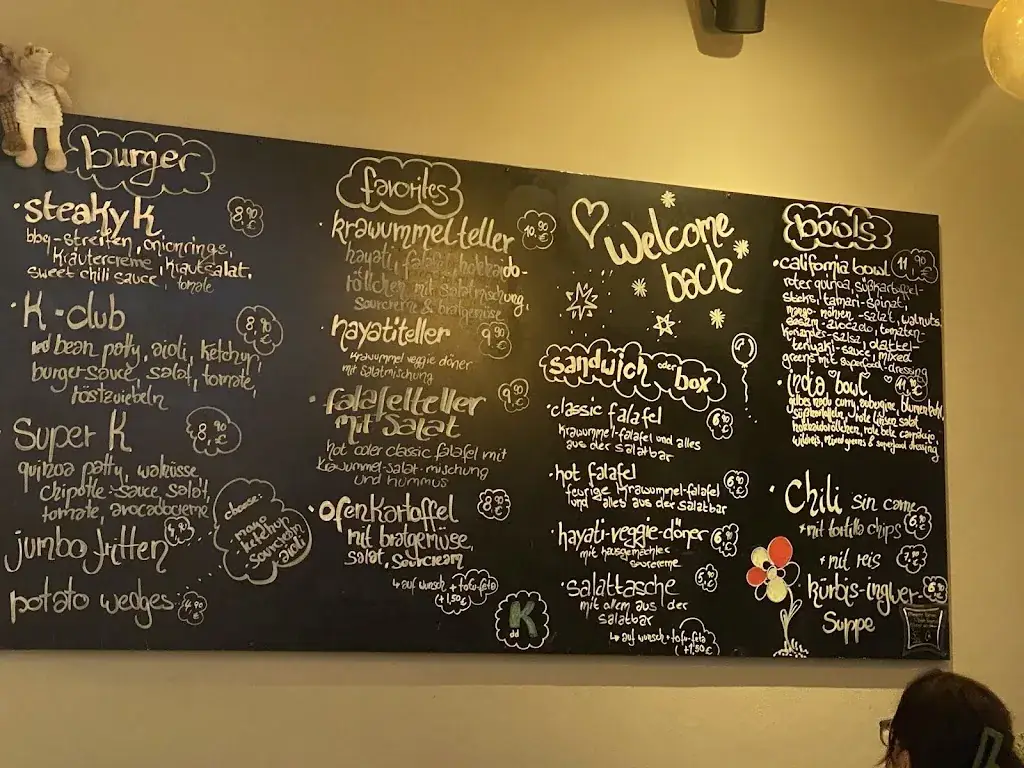 burger
• steaky K 8,90 €
bbq-streifen, onionrings,
kräutercreme, krautsalat,
sweet chili sauce, tomate
• K-club 8,90 €
red bean patty, aioli, ketchup
burger-sauce, salat, tomate,
röstzwiebeln
Super K 8,90 €
quinoa patty, walnüsse,
chipotle-sauce, salat,
tomate, avocadocreme
jumbo fritten
choose:
mayo
ketchup
sourcream
aioli
potato wedges 4,90 €
favorites
• krawummel-teller 10,90 €
hayati, falafel, hokkaido-
röllchen mit salatmischung,
sourcreme & bratgemüse
• hayati'teller 9,90 €
krawummel veggie döner
mit salatmischung
• falafelteller 9,90 €
mit Salat
hot oder classic falafel mit
krawummel-salat-mischung
und hummus
• ofenkartoffel 8,90 €
mit bratgemüse,
salat, sourcream
↳ auf wunsch + tofu-feta
+1,50€
K
dd
Welcome
back
sandwich oder box
• classic falafel 6,90 €
krawummel-falafel und alles
aus der salatbar
• hot falafel 6,90 €
feurige krawummel-falafel
und alles aus der salatbar
• hayati-veggie-döner 6,90 €
mit hausgemachter
sourcreme
• salattasche 5,90 €
mit allem aus der
salatbar
↳ auf wunsch + tofu-feta
+1,50€
bowls
• california bowl 11,90 €
roter quinoa, süßkartoffel-
sticks, tamari-spinat
mango-möhren-salat, walnuts
sesam-avocado, tomaten
koriander-salsa, dattel
teriyaki-sauce, mixed
greens mit superfood-dressing
• india bowl 11,90 €
gelbes madu curry, aubergine, blumenkohl,
süßkartoffeln, rote linsen salat
hokkaidoröllchen, rote bete carpaccio
wildreis, mixed greens & superfood dressing
• Chili sin carne
* mit tortilla chips 6,90 €
* mit reis 7,90 €
kürbis-ingwer- 6,90 €
Suppe